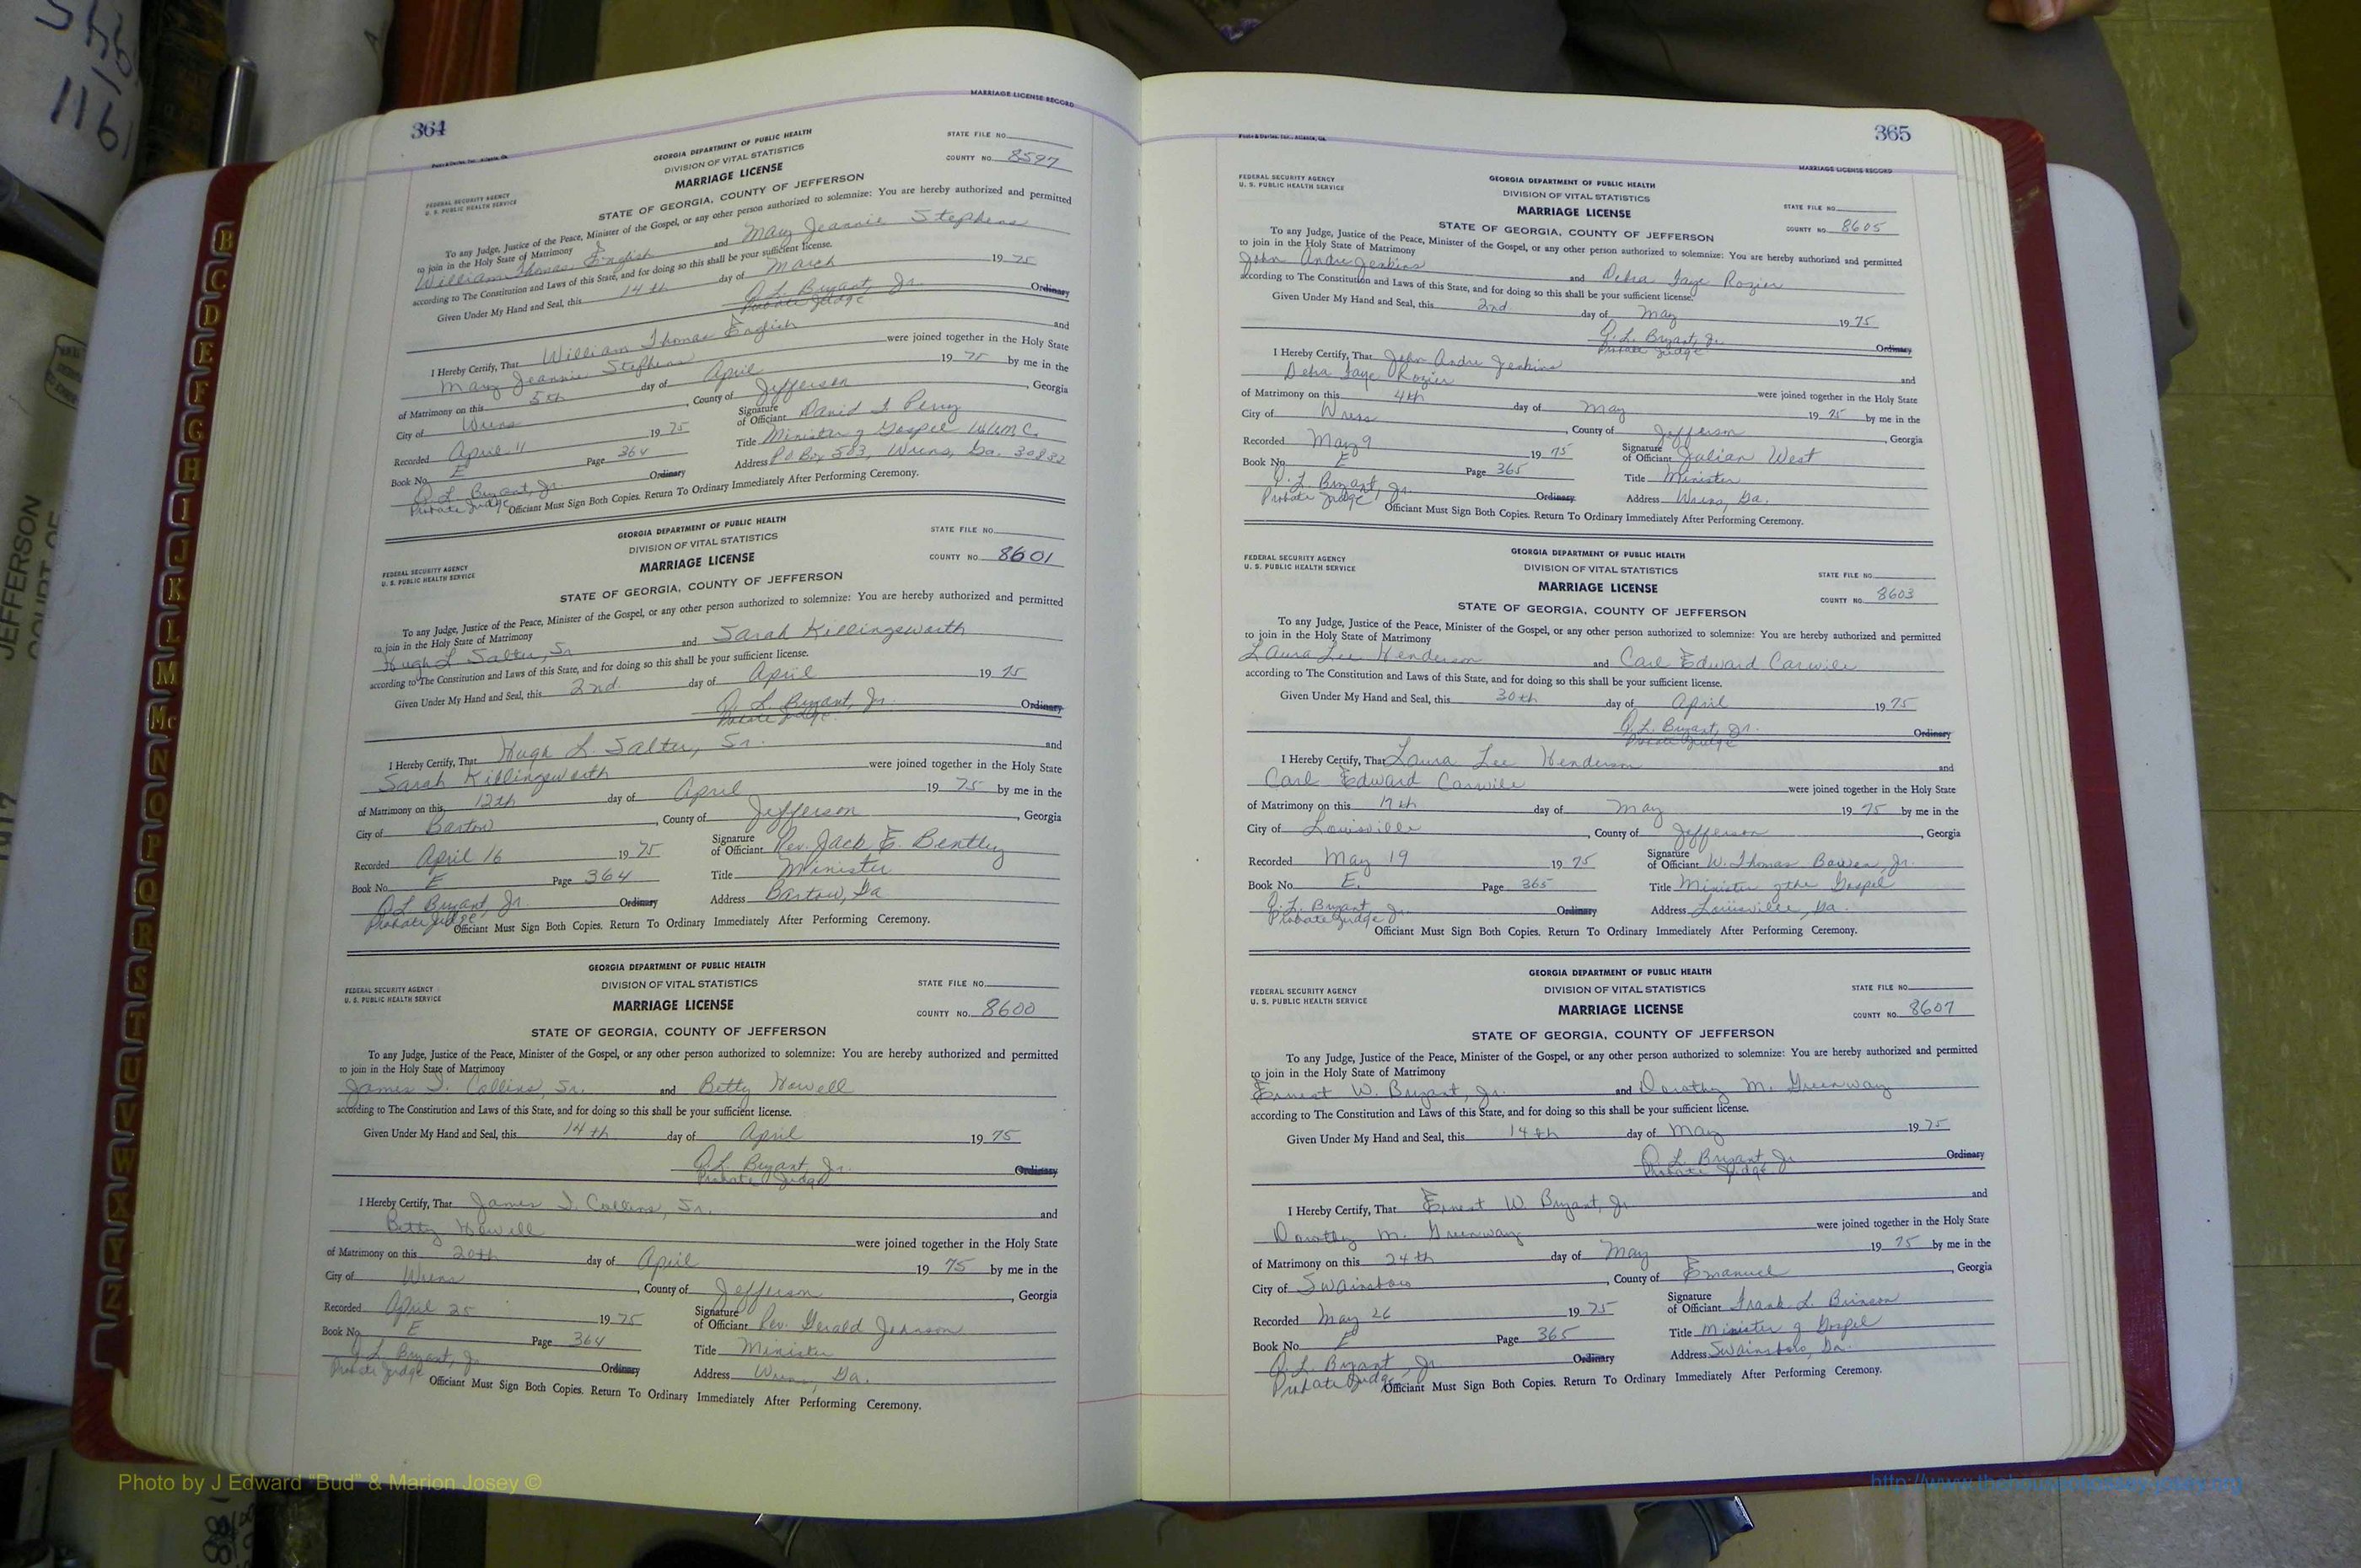 364
MARRIAGE LICENSE RECORD
GEORGIA DEPARTMENT OF PUBLIC HEALTH
DIVISION OF VITAL STATISTICS
MARRIAGE LICENSE
STATE OF GEORGIA, COUNTY OF JEFFERSON
STATE FILE NO.
COUNTY NO. 8597
FEDERAL SECURITY AGENCY
U. S. PUBLIC HEALTH SERVICE
To any Judge, Justice of the Peace, Minister of the Gospel, or any other person authorized to solemnize: You are hereby authorized and permitted
to join in the Holy State of Matrimony
William Thomas English and Mary Jeannie Stephens
according to The Constitution and Laws of this State, and for doing so this shall be your sufficient license.
Given Under My Hand and Seal, this 14th day of March 19 75
Q. L. Bryant, Jr. Ordinary
Probate Judge
I Hereby Certify, That William Thomas English and
Mary Jeannie Stephens were joined together in the Holy State
of Matrimony on this 5th day of April 19 75 by me in the
City of Wrens, County of Jefferson, Georgia
Recorded April 11 19 75 Signature of Officiant David T Perry
Book No. E Page 364 Title Minister of Gospel WUMC.
Q. L. Bryant, Jr. Ordinary Address P.O Box 583, Wrens, Ga. 30832
Probate Judge Officiant Must Sign Both Copies. Return To Ordinary Immediately After Performing Ceremony.
GEORGIA DEPARTMENT OF PUBLIC HEALTH
DIVISION OF VITAL STATISTICS
MARRIAGE LICENSE
STATE OF GEORGIA, COUNTY OF JEFFERSON
STATE FILE NO.
COUNTY NO. 8601
FEDERAL SECURITY AGENCY
U. S. PUBLIC HEALTH SERVICE
To any Judge, Justice of the Peace, Minister of the Gospel, or any other person authorized to solemnize: You are hereby authorized and permitted
to join in the Holy State of Matrimony
Hugh L Salter, Sr and Sarah Killingsworth
according to The Constitution and Laws of this State, and for doing so this shall be your sufficient license.
Given Under My Hand and Seal, this 2nd. day of April 19 75
Q. L. Bryant, Jr. Ordinary
Probate Judge
I Hereby Certify, That Hugh L. Salter, Sr. and
Sarah Killingsworth were joined together in the Holy State
of Matrimony on this 12th day of April 19 75 by me in the
City of Bartow, County of Jefferson, Georgia
Recorded April 16 19 75 Signature of Officiant Rev. Jack E. Bentley
Book No. E Page 364 Title Minister
Q L Bryant, Jr. Ordinary Address Bartow, Ga
Probate Judge Officiant Must Sign Both Copies. Return To Ordinary Immediately After Performing Ceremony.
GEORGIA DEPARTMENT OF PUBLIC HEALTH
DIVISION OF VITAL STATISTICS
MARRIAGE LICENSE
STATE OF GEORGIA, COUNTY OF JEFFERSON
STATE FILE NO.
COUNTY NO. 8600
FEDERAL SECURITY AGENCY
U. S. PUBLIC HEALTH SERVICE
To any Judge, Justice of the Peace, Minister of the Gospel, or any other person authorized to solemnize: You are hereby authorized and permitted
to join in the Holy State of Matrimony
James I. Collins, Sr. and Betty Howell
according to The Constitution and Laws of this State, and for doing so this shall be your sufficient license.
Given Under My Hand and Seal, this 14th day of April 19 75
Q. L. Bryant, Jr. Ordinary
Probate Judge
I Hereby Certify, That James I. Collins, Sr. and
Betty Howell were joined together in the Holy State
of Matrimony on this 20th day of April 19 75 by me in the
City of Wrens, County of Jefferson, Georgia
Recorded April 25 19 75 Signature of Officiant Rev. Gerald Johnson
Book No. E Page 364 Title Minister
Q L Bryant, Jr Ordinary Address Wrens, Ga.
Probate Judge Officiant Must Sign Both Copies. Return To Ordinary Immediately After Performing Ceremony.
365
MARRIAGE LICENSE RECORD
FEDERAL SECURITY AGENCY
U. S. PUBLIC HEALTH SERVICE
GEORGIA DEPARTMENT OF PUBLIC HEALTH
DIVISION OF VITAL STATISTICS
MARRIAGE LICENSE
STATE OF GEORGIA, COUNTY OF JEFFERSON
STATE FILE NO.
COUNTY NO. 8605
To any Judge, Justice of the Peace, Minister of the Gospel, or any other person authorized to solemnize: You are hereby authorized and permitted
to join in the Holy State of Matrimony
John Andre Jenkins and Debra Faye Rozier
according to The Constitution and Laws of this State, and for doing so this shall be your sufficient license.
Given Under My Hand and Seal, this 2nd day of May 19 75
Q. L. Bryant, Jr. Ordinary
Probate Judge
I Hereby Certify, That John Andre Jenkins and
Debra Faye Rozier were joined together in the Holy State
of Matrimony on this 4th day of May 19 75 by me in the
City of Wrens, County of Jefferson, Georgia
Recorded May 9 19 75 Signature of Officiant Julian West
Book No. E Page 365 Title Minister
Q. L. Bryant, Jr. Ordinary Address Wrens, Ga.
Probate Judge Officiant Must Sign Both Copies. Return To Ordinary Immediately After Performing Ceremony.
FEDERAL SECURITY AGENCY
U. S. PUBLIC HEALTH SERVICE
GEORGIA DEPARTMENT OF PUBLIC HEALTH
DIVISION OF VITAL STATISTICS
MARRIAGE LICENSE
STATE OF GEORGIA, COUNTY OF JEFFERSON
STATE FILE NO.
COUNTY NO. 8603
To any Judge, Justice of the Peace, Minister of the Gospel, or any other person authorized to solemnize: You are hereby authorized and permitted
to join in the Holy State of Matrimony
Laura Lee Henderson and Carl Edward Carwile
according to The Constitution and Laws of this State, and for doing so this shall be your sufficient license.
Given Under My Hand and Seal, this 30th day of April 19 75
Q. L. Bryant, Jr. Ordinary
Probate Judge
I Hereby Certify, That Laura Lee Henderson and
Carl Edward Carwile were joined together in the Holy State
of Matrimony on this 17th day of May 19 75 by me in the
City of Louisville, County of Jefferson, Georgia
Recorded May 19 19 75 Signature of Officiant W. Thomas Bowen, Jr.
Book No. E. Page 365 Title Minister of the Gospel
Q. L. Bryant Jr. Ordinary Address Louisville, Ga.
Probate Judge Officiant Must Sign Both Copies. Return To Ordinary Immediately After Performing Ceremony.
FEDERAL SECURITY AGENCY
U. S. PUBLIC HEALTH SERVICE
GEORGIA DEPARTMENT OF PUBLIC HEALTH
DIVISION OF VITAL STATISTICS
MARRIAGE LICENSE
STATE OF GEORGIA, COUNTY OF JEFFERSON
STATE FILE NO.
COUNTY NO. 8607
To any Judge, Justice of the Peace, Minister of the Gospel, or any other person authorized to solemnize: You are hereby authorized and permitted
to join in the Holy State of Matrimony
Ernest W. Bryant, Jr. and Dorothy M. Greenway
according to The Constitution and Laws of this State, and for doing so this shall be your sufficient license.
Given Under My Hand and Seal, this 14th day of May 19 75
Q L Bryant, Jr Ordinary
Probate Judge
I Hereby Certify, That Ernest W. Bryant, Jr and
Dorothy M. Greenway were joined together in the Holy State
of Matrimony on this 24th day of May 19 75 by me in the
City of Swainsboro, County of Emanuel, Georgia
Recorded May 26 19 75 Signature of Officiant Frank L. Brinson
Book No. E Page 365 Title Minister of Gospel
Q. L. Bryant, Jr Ordinary Address Swainsboro, Ga.
Probate Judge Officiant Must Sign Both Copies. Return To Ordinary Immediately After Performing Ceremony.
B
C
D
E
F
G
H
I
J
K
L
M
Mc
N
O
P
Q
R
S
T
U
V
W
X
Y
Z
JEFFERSON
COURT OF
1161
Photo by J Edward "Bud" & Marion Josey ©